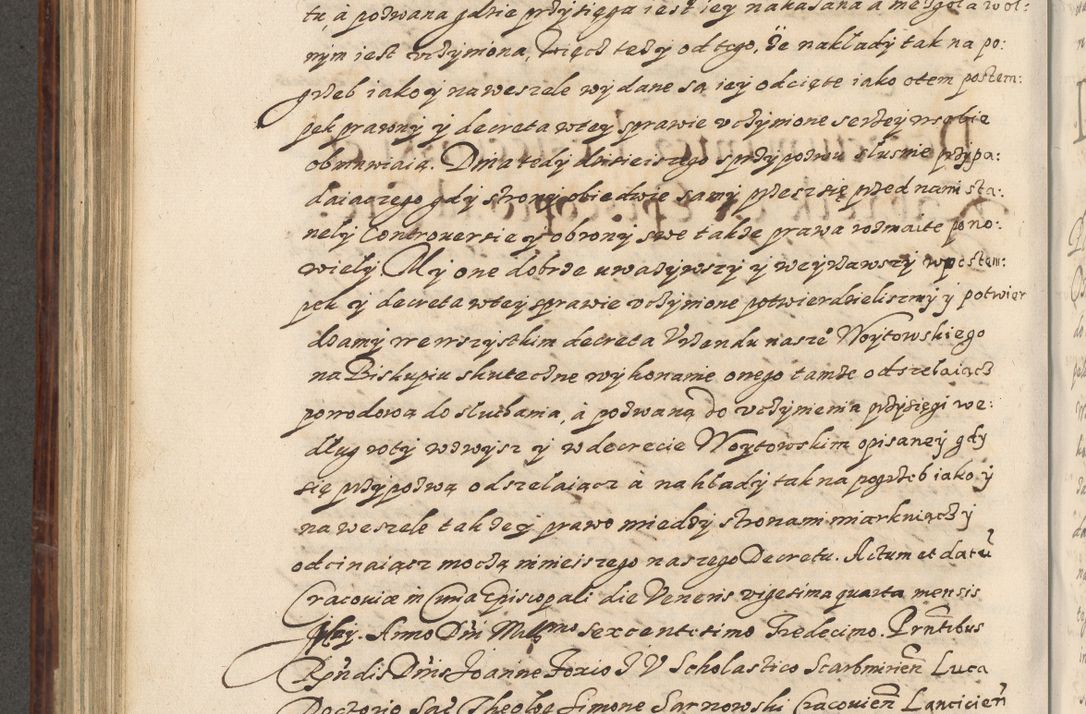 tu, á pozwana gdzie przysięga iest iey nakazana á medgoła wol-
nym iest uczymona, Więcz tedy od tego, że nakłady tak na po:
grzeb iako y na weszele wydane są iey odcięte iako otem postem:
pek prawny y decreta wtey sprawie uczymione serzey wsobie
obmawiaią. Dnia tedy dzisieiszego sprzypozwu słusnie przypa:
daiączego gdy strony obiedwie samy przeszsię przed nami sta:
nely Controuersie y obrony swe także prawa rozmaite pono:
wiely My one dobrze uwazywszy y weyzrawszy w postem:
pek y decreta wtey sprawie uczymione potwierdzieliszmy y potwier
dzamy we wszystkim decreta Urzendu nasze° Woytowskiego
na Biskupiu skuteczne wykonanie onego tamże odszelaiącz
powodową do słuchania, á pozwaną do uczymienia przysięgi we:
dług roty wzwysz y w decrecie Woytowskim opisaney gdy
się przypozwą odszelaiącz a nakłady tak na pogrzeb iako y
na weszele także y prawo miedzy stronami miarkuiącz y
odcinaiącz moczą ninieiszego naszego Decretu. Actum et datū
Cracouiæ in Curia Episcopali die Veneris vigesima quarta mensis
Maij. Anno Dnī Millmo sexcentesimo Tredecimo. Prntibus
Rndis Dnis Joanne Foxio J V Scholastico Scarbmirien Luca
Doctorio Sac Theoloe Simone Sarnowski Cracouien Lancicien